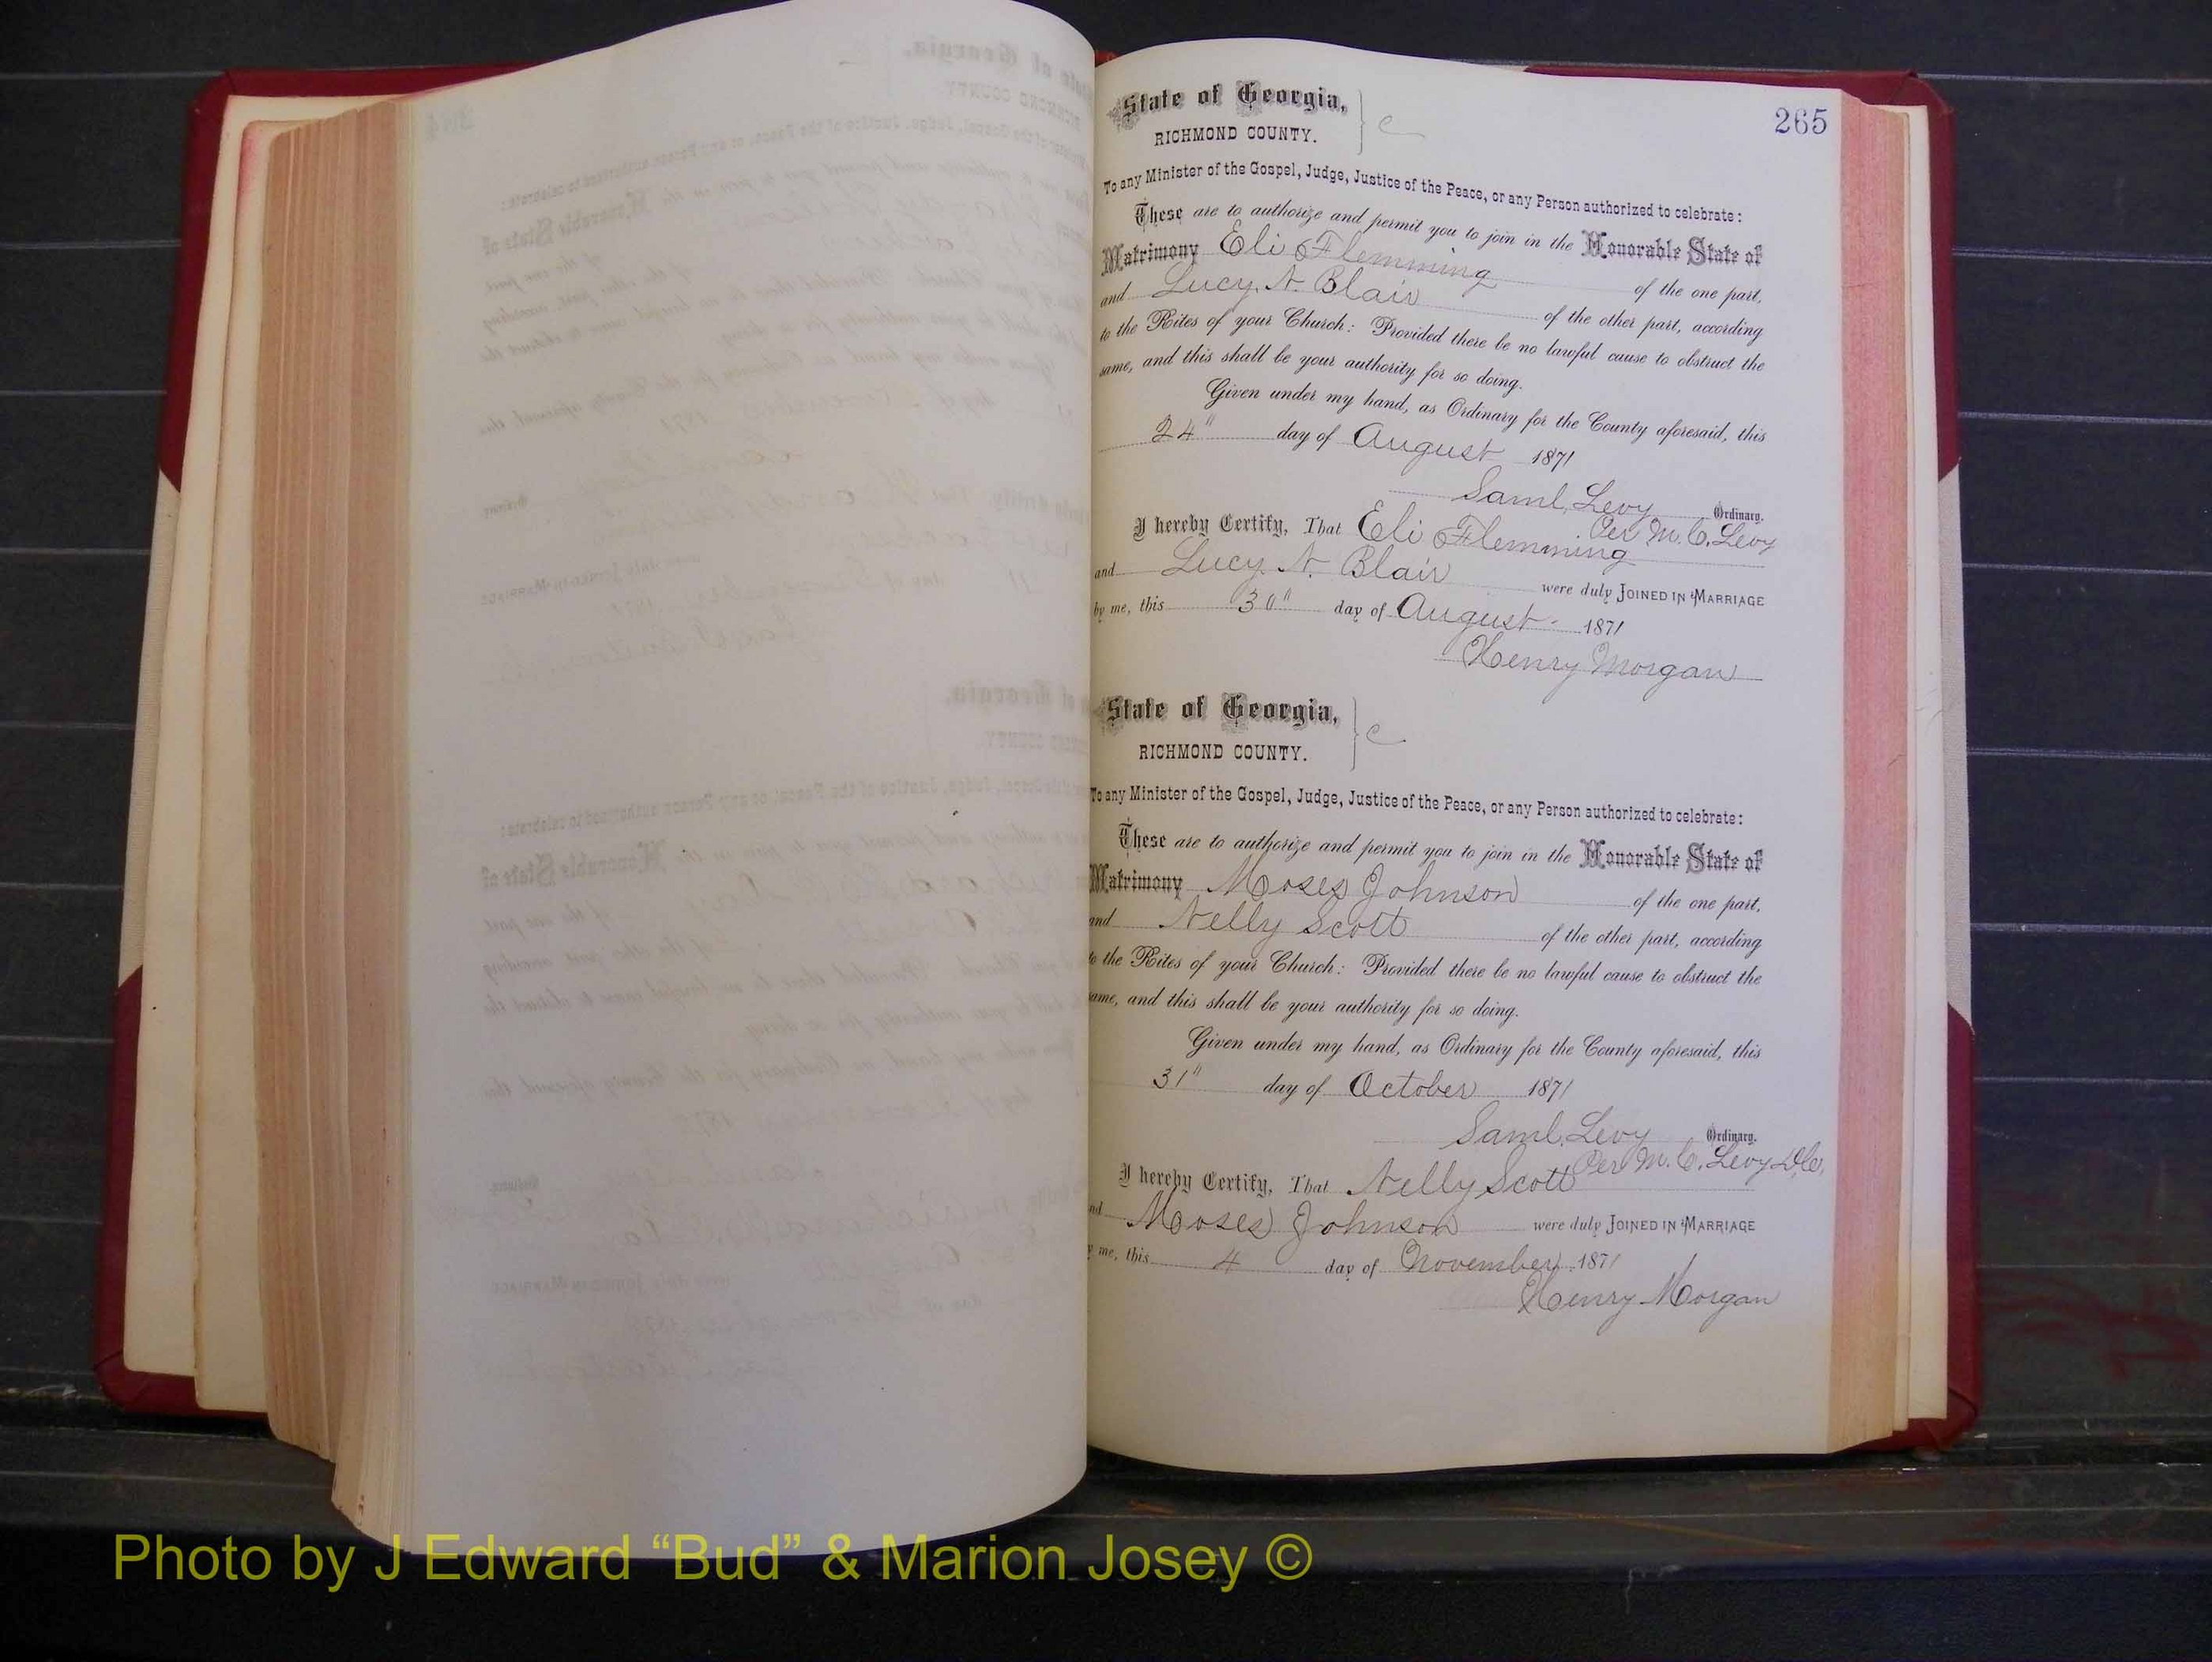 265
State of Georgia,
RICHMOND COUNTY.
C
To any Minister of the Gospel, Judge, Justice of the Peace, or any Person authorized to celebrate:
These are to authorize and permit you to join in the Honorable State of
Matrimony Eli Flemming of the one part,
and Lucy N. Blair of the other part, according
to the Rites of your Church: Provided there be no lawful cause to obstruct the
same, and this shall be your authority for so doing.
Given under my hand, as Ordinary for the County aforesaid, this
24" day of August 1871
Saml. Levy Ordinary.
Per M. C. Levy
I hereby Certify, That Eli Flemming
and Lucy N. Blair were duly JOINED IN MARRIAGE
by me, this 30" day of August 1871
Henry Morgan
State of Georgia,
RICHMOND COUNTY.
C
To any Minister of the Gospel, Judge, Justice of the Peace, or any Person authorized to celebrate:
These are to authorize and permit you to join in the Honorable State of
Matrimony Moses Johnson of the one part,
and Nelly Scott of the other part, according
to the Rites of your Church: Provided there be no lawful cause to obstruct the
same, and this shall be your authority for so doing.
Given under my hand, as Ordinary for the County aforesaid, this
31" day of October 1871
Saml. Levy Ordinary.
Per M. C. Levy
I hereby Certify, That Nelly Scott
and Moses Johnson were duly JOINED IN MARRIAGE
by me, this 4 day of November 1871
Henry Morgan
Photo by J Edward “Bud” & Marion Josey ©